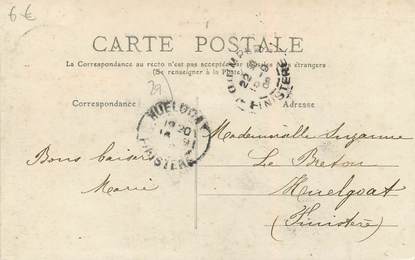 6€
CARTE POSTALE
La Correspondance au recto n'est pas acceptée par tous les pays étrangers
(Se renseigner à la Poste)
29
Correspondance
Adresse
QUIMPER
FINISTERE
HUELGOAT
FINISTERE
Mademoiselle Suzanne
Le Breton
Huelgoat
(Finistère)
Bons baisers
Marie